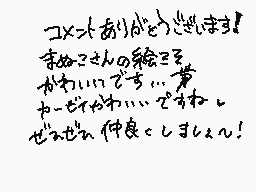 コメントありがとうございます!
まぬこさんの絵こそ
かわいいです…
カービィかわいいですね
ぜひぜひ仲良くしましょ〜!